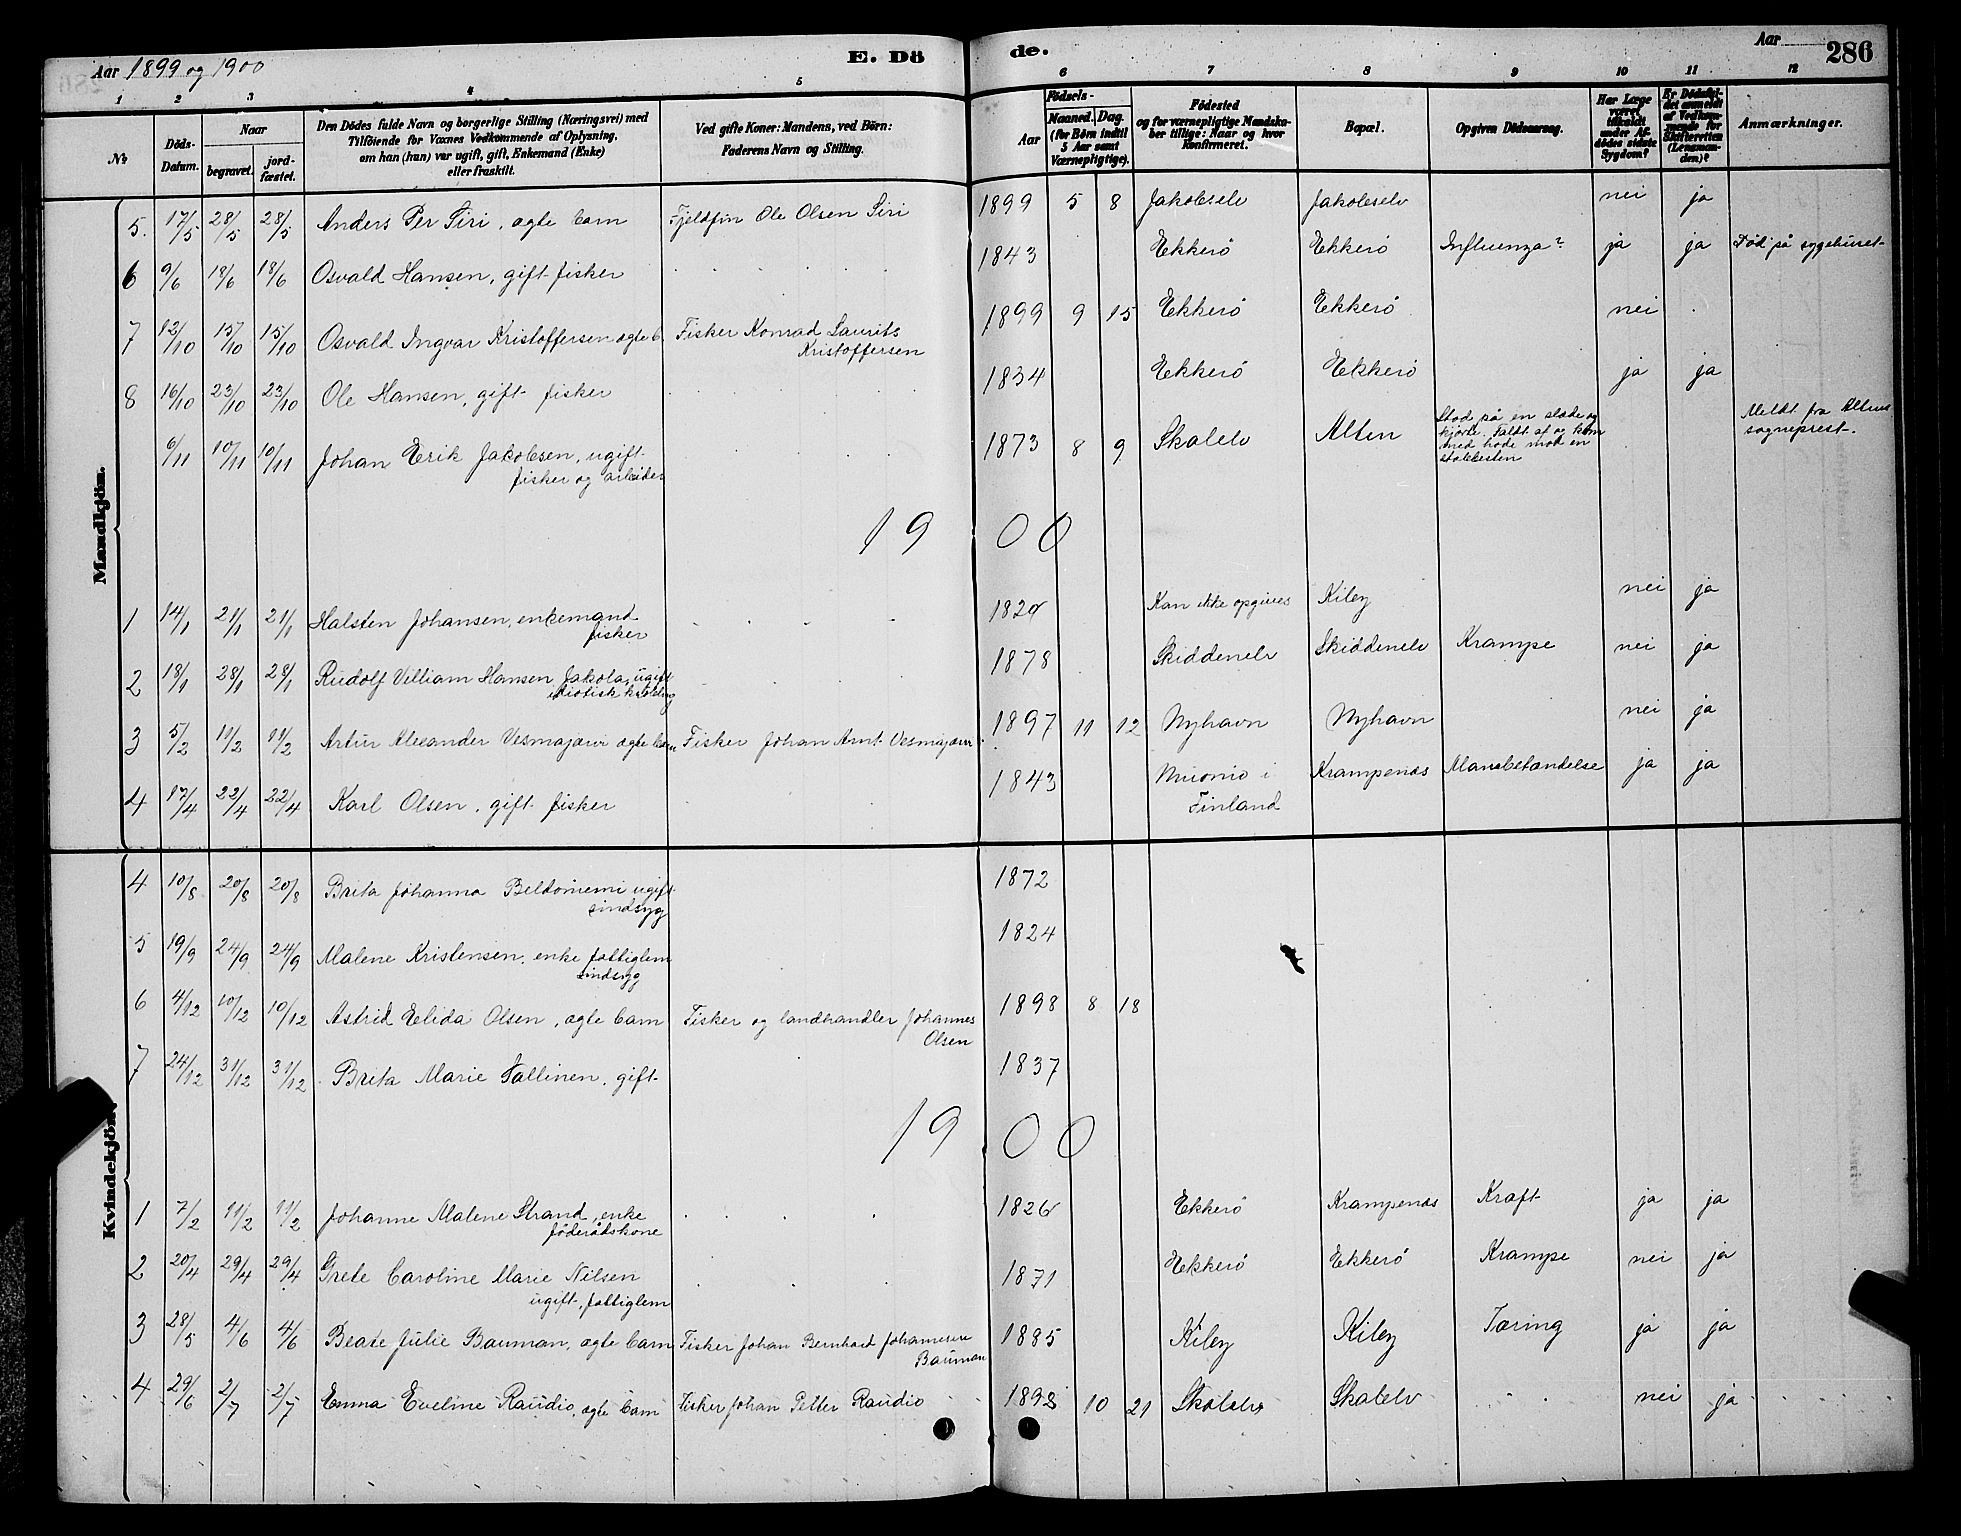 Aar 1899 og 1900 E. Dö de. Aar 286
1 2 3 4 5 6 7 8 9 10 11 12
No Döds-Datum. Naar begravet. jord-fæstet. Den Dödes fulde Navn og borgerlige Stilling (Næringsvei) med Tilföiende for Voxnes Vedkommende af Oplysning, om han (hun) var ugift, gift, Enkemand (Enke) eller fraskilt. Ved gifte Koner: Mandens, ved Börn: Faderens Navn og Stilling. Födsels- Aar Maaned. Dag. (for Börn indtil 5 Aar samt Værnepligtige). Födested og for værnepligtige Mandskaber tillige: Naar og hvor Konfirmeret. Bopæl. Opgiven Dödsaarsag. Har Læge været tilkaldt under Afdödes sidste Sygdom? Er Dödsfaldet anmeldt af Vedkommende for Skifteretten (Lensmanden)? Anmærkninger.
Mandkjön.
5. 17/5 28/5 28/5 Anders Per Siri, ægte barn Fjeldfin Ole Olsen Siri 1899 5 8 Jakobselv Jakobselv nei ja
6 9/6 18/6 18/6 Osvald Hansen, gift fisker 1843 Ekkerö Ekkerö Influenza? ja ja Död på sygehuset
7 12/10 15/10 15/10 Osvald Ingvar Kristoffersen ægte b. Fisker Konrad Laurits Kristoffersen 1899 9 15 Ekkerö Ekkerö nei
8 16/10 23/10 23/10 Ole Hansen, gift fisker 1834 Ekkerö Ekkerö ja ja
6/11 10/11 10/11 Johan Erik Jakobsen, ugift fisker og arbeider 1873 8 9 Skalelv Alten Stod på en slæde og kjörte. Faldt af og kom med hode mod en Meldt fra Altens sogneprest.
1900
1 14/1 21/1 21/1 Halsten Johansen, enkemand fisker 1820 Kan ikke opgives Kiley nei ja
2 18/1 28/1 28/1 Rudolf Villiam Hansen Jakola, ugift idiotisk 1878 Skiddenelv Skiddenelv Krampe nei ja
3 5/2 11/2 11/2 Artur Alexander Vesmajærvi ægte barn Fisker Johan Arnt Vesmajærvi 1897 11 12 Nyhavn Nyhavn nei ja
4 17/4 22/4 22/4 Karl Olsen, gift fisker 1843 Muonio i Finland Krampenæs ja ja
Kvindekjön.
4 10/8 20/8 20/8 Brita Johanna Beldoniemi ugift sindsyg 1872
5 19/9 24/9 24/9 Malene Kristensen, enke fattiglem sindsyg 1824
6 4/12 10/12 10/12 Astrid Elida Olsen, ægte barn Fisker og landhandler Johannes Olsen 1898 8 18
7 24/12 31/12 31/12 Brita Marie Tallinen, gift 1837
1900
1 7/2 11/2 11/2 Johanne Malene Strand, enke föderådskone 1826 Ekkerö Krampenæs Kræft ja ja
2 20/4 29/4 29/4 Grete Caroline Marie Nilsen ugift, fattiglem 1871 Ekkerö Ekkerö Krampe nei ja
3 28/5 4/6 4/6 Beate Julie Bauman, ægte barn Fisker Johan Bernhard Johannesen Bauman 1885 Kiley Kiley Tæring ja ja
4 29/6 2/7 2/7 Emma Eveline Raudio, ægte barn Fisker Johan Petter Raudio 1898 10 21 Skalelv Skalelv nei ja